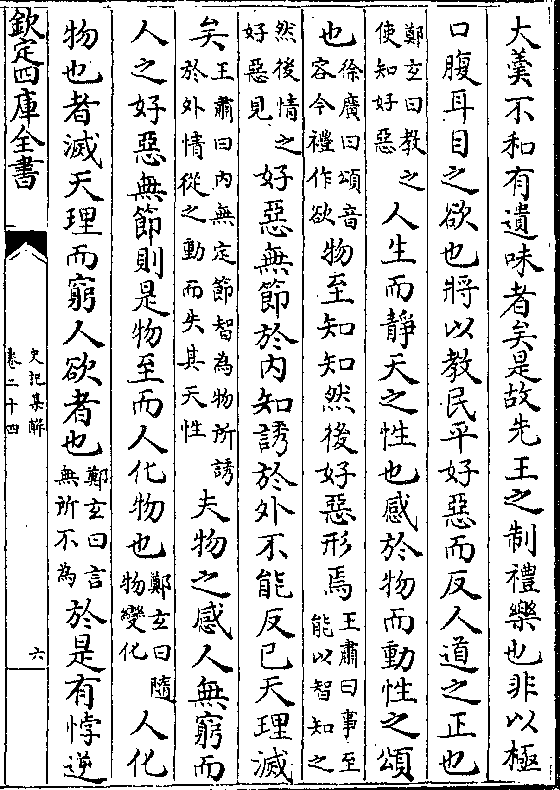 大羹不和有遺味者矣是故先王之制禮樂也非以極
口腹耳目之欲也將以教民平好惡而反人道之正也
鄭玄曰教之使知好惡人生而靜天之性也感於物而動性之頌
也徐廣曰頌音容今禮作欲物至知知然後好惡形焉王肅曰事至能以智知之
然後情之好惡見好惡無節於内知誘於外不能反己天理滅
矣王肅曰内無定節智為物所誘於外情從之動而失其天性夫物之感人無窮而
人之好惡無節則是物至而人化物也鄭玄曰隨物變化人化
物也者滅天理而窮人欲者也鄭玄曰言無所不為於是有悖逆
欽定四庫全書
史記集解
卷二十四
六